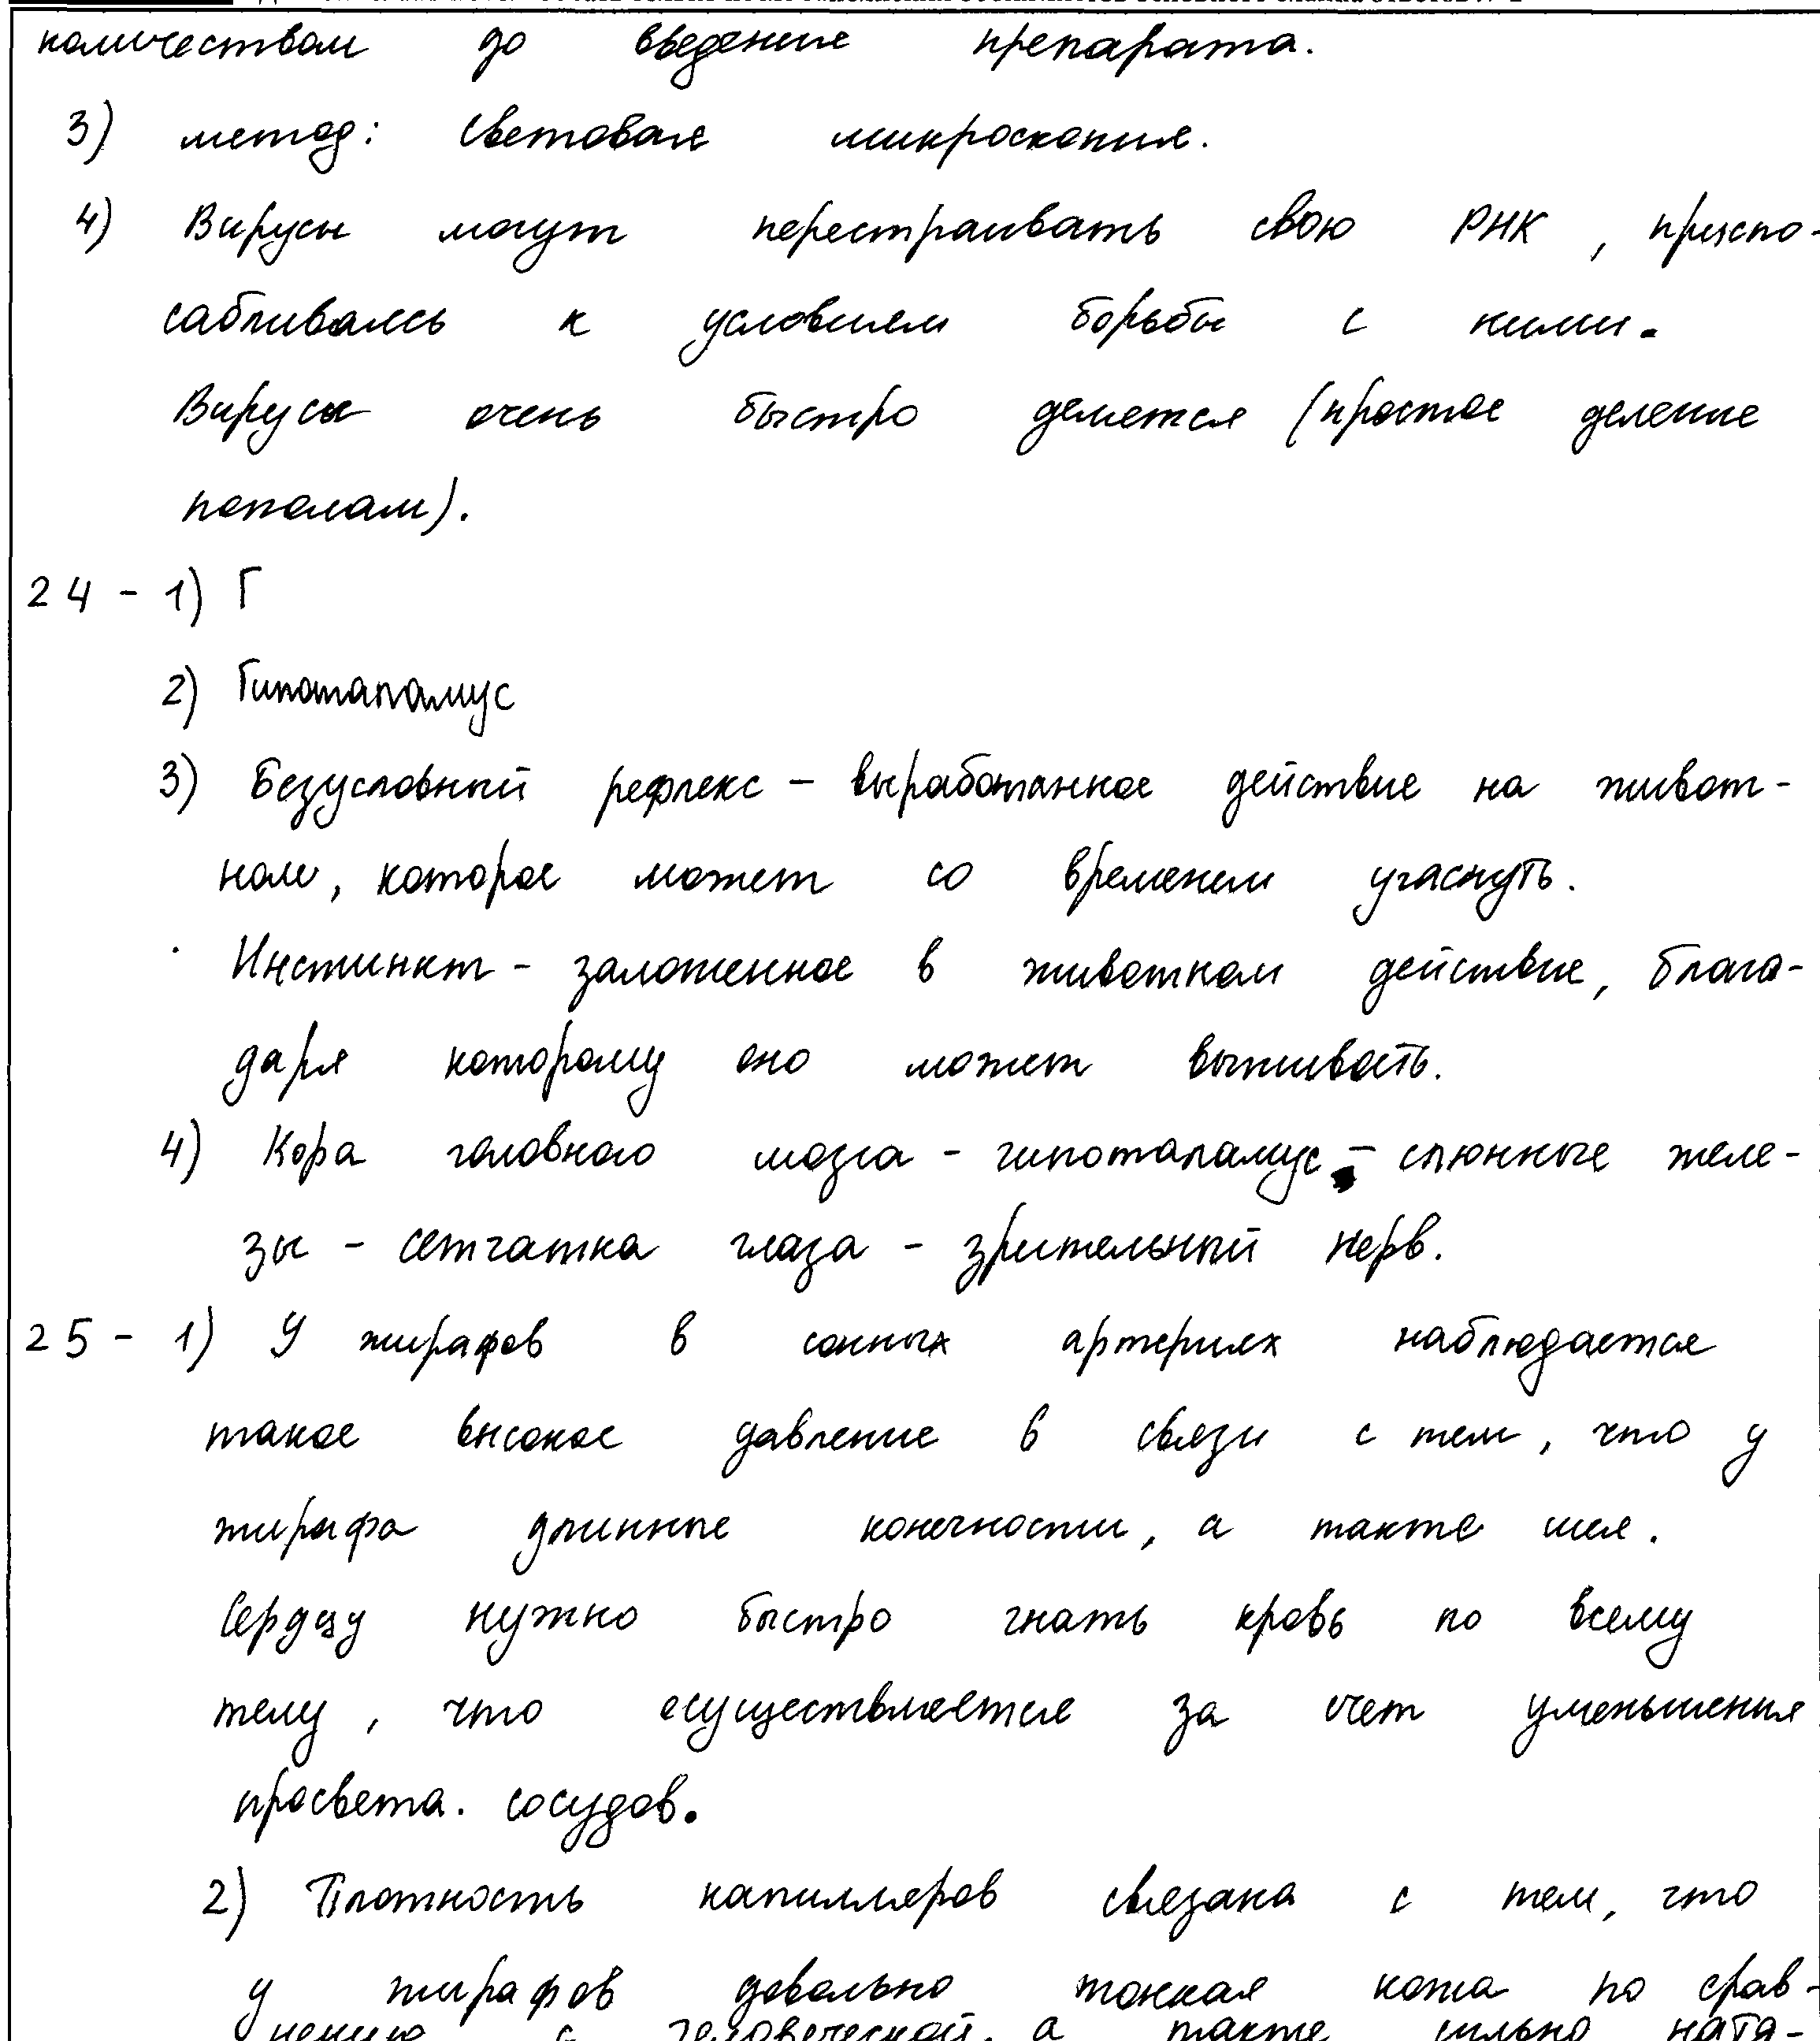 количеством до введение препарата.
3) метод: световая микроскопия.
4) Вирусы могут перестраивать свою РНК, приспо-
сабливаясь к условиям борьбы с ними.
Вирусы очень быстро делятся (простое деление
пополам).
24 - 1) Г
2) Гипоталамус
3) Безусловный рефлекс - выработанное действие на живот-
ном, которое может со временем угаснуть.
Инстинкт - заложенное в животном действие, благо-
даря которому оно может выживать.
4) Кора головного мозга - гипоталамус - слюнные желе-
зы - сетчатка глаза - зрительный нерв.
25 - 1) У жирафов в сонных артериях наблюдается
такое высокое давление в связи с тем, что у
жирафа длинные конечности, а также шея.
Сердцу нужно быстро гнать кровь по всему
телу, что осуществляется за счет уменьшения
просвета. сосудов.
2) Плотность капилляров связана с тем, что
у жирафов довольно тонкая кожа по срав-
нению с человеческой, а также сильно натя-